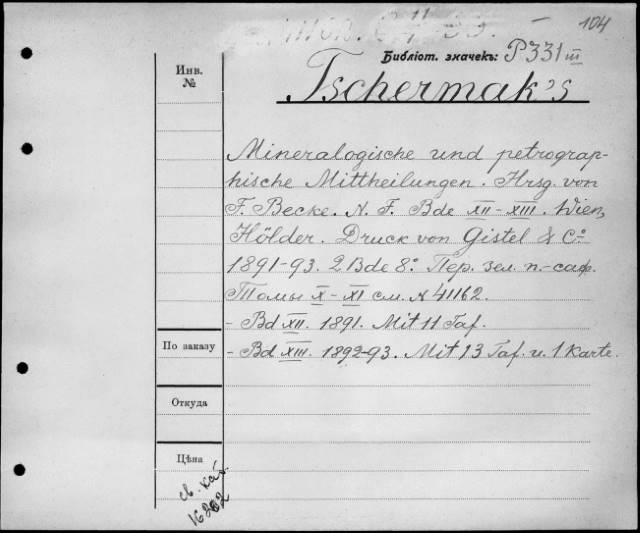 104
Библіот. значекъ: P331 III
Инв.
№
Tschermak's
Mineralogische und petrograp-
hische Mittheilungen. Hrsg. von
F. Becke. N. F. Bde XII-XIII. Wien,
Hölder. Druck von Gistel & C°
1891-93. 2 Bde 8°. Пер. зел. п.-саф.
Томы X-XI см. № 41162.
- Bd XII. 1891. Mit 11 Taf.
По заказу
- Bd XIII. 1892-93. Mit 13 Taf. u. 1 Karte.
Откуда
Цѣна
св. каб.